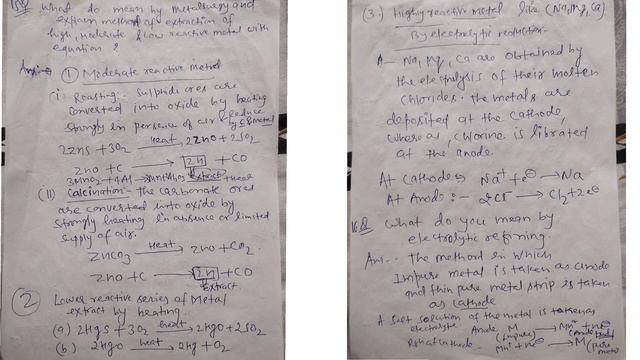 What do mean by metallurgy and
explain method of extraction of
high, moderate & low reactive metal with
equation ?
Ans:- ① Moderate reactive metal
(i) Roasting:- Sulphide ores are
converted into oxide by heating
strongly in persence of air & Reduce
by C & metal
2ZnS + 3O2 heat→ 2ZnO + 2SO2
ZnO + C → Zn + CO
3MnO2 + 4Al → extract + Heat
(II) Calcination:- the carbonate ores
are converted into oxide by
strongly heating in absence or limited
supply of air.
ZnCO3 Heat→ ZnO + CO2.
ZnO + C → Zn + CO
Extract.
② Lower reactive series of Metal
extract by heating
(a) 2HgS + 3O2 heat→ 2HgO + 2SO2
(b) 2HgO heat→ 2Hg + O2
(3.) Highly reactive metal like (Na, Mg, Ca)
By electrolytic reduction.
A— Na, Mg, Ca are obtained by
the electrolysis of their molten
chlorides. the metals are
deposited at the cathode,
whereas, chlorine is librated
at the anode.
At Cathode:- Na+ + e⊖ → Na
At Anode:- 2Cl- → Cl2 + 2e⊖
16Q What do you mean by
electrolytic refining.
Ans.. The method in which
Impure metal is taken as anode
and thin pure metal strip is taken
as cathode
A salt solution of the metal is taken as
electrolyte Anode M (Impure) → Mn+ + ne⊖
At cathode:- Mn+ + ne⊖ → M (pure metal)